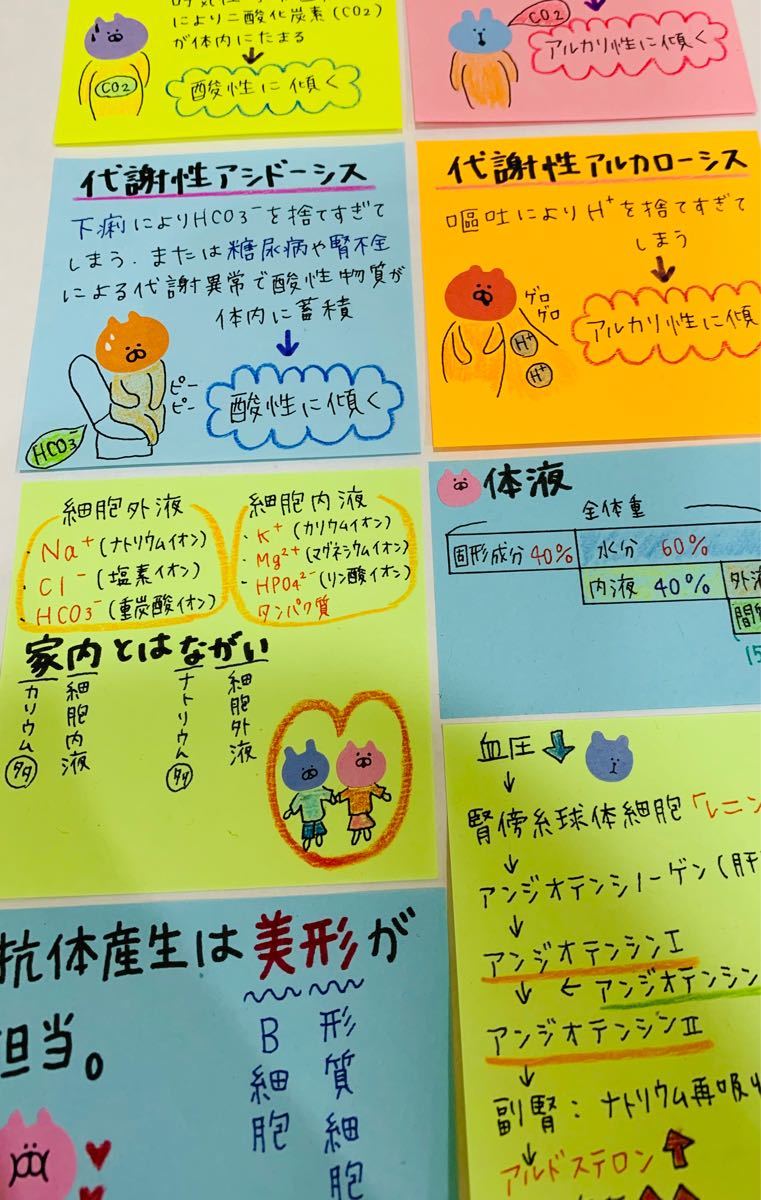 により二酸化炭素(CO2)
が体内にたまる
CO2
酸性に傾く
CO2
アルカリ性に傾く
代謝性アシドーシス
下痢によりHCO3⁻を捨てすぎて
しまう.または糖尿病や腎不全
による代謝異常で酸性物質が
体内に蓄積
ピー
ピー
酸性に傾く
HCO3⁻
代謝性アルカローシス
嘔吐によりH⁺を捨てすぎて
しまう
ゲロ
ゲロ
H⁺
H⁺
アルカリ性に傾
細胞外液
・Na⁺(ナトリウムイオン)
・Cl⁻(塩素イオン)
・HCO3⁻(重炭酸イオン)
細胞内液
・K⁺(カリウムイオン)
・Mg²⁺(マグネシウムイオン)
・HPO4²⁻(リン酸イオン)
タンパク質
家内とはながい
カリウム多
細胞内液
ナトリウム多
細胞外液
体液
全体重
固形成分40% 水分 60%
内液 40% 外液
間質
15
血圧↓
↓
腎傍糸球体細胞「レニン
↓
アンジオテンシノーゲン(肝
↓
アンジオテンシンⅠ
↓ ← アンジオテンシン
アンジオテンシンⅡ
↓
副腎:ナトリウム再吸収
↓
アルドステロン↑
抗体産生は美形が
担当。
B細胞
形質細胞